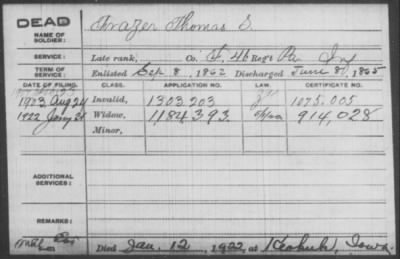 DEAD
NAME OF SOLDIER: Frazer Thomas S.
SERVICE: Late rank, Co. F, 46 Reg't Pa Inf
TERM OF SERVICE: Enlisted Sep 8, 1862 Discharged June 8, 1865
DATE OF FILING. CLASS. APPLICATION NO. LAW. CERTIFICATE NO.
Aug 24 Invalid, 1303.203 1075.005
1922 Widow, 1184393 914,028
Minor,
ADDITIONAL SERVICES:
REMARKS:
Died Jan. 12, 1922, at Keokuk, Iowa.